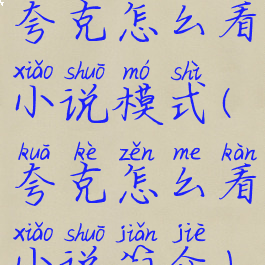 夸克怎么看
xiǎo shuō mó shì
小说模式(
kuā kè zěn me kàn
夸克怎么看
xiǎo shuō jiǎn jiè
小说简介)